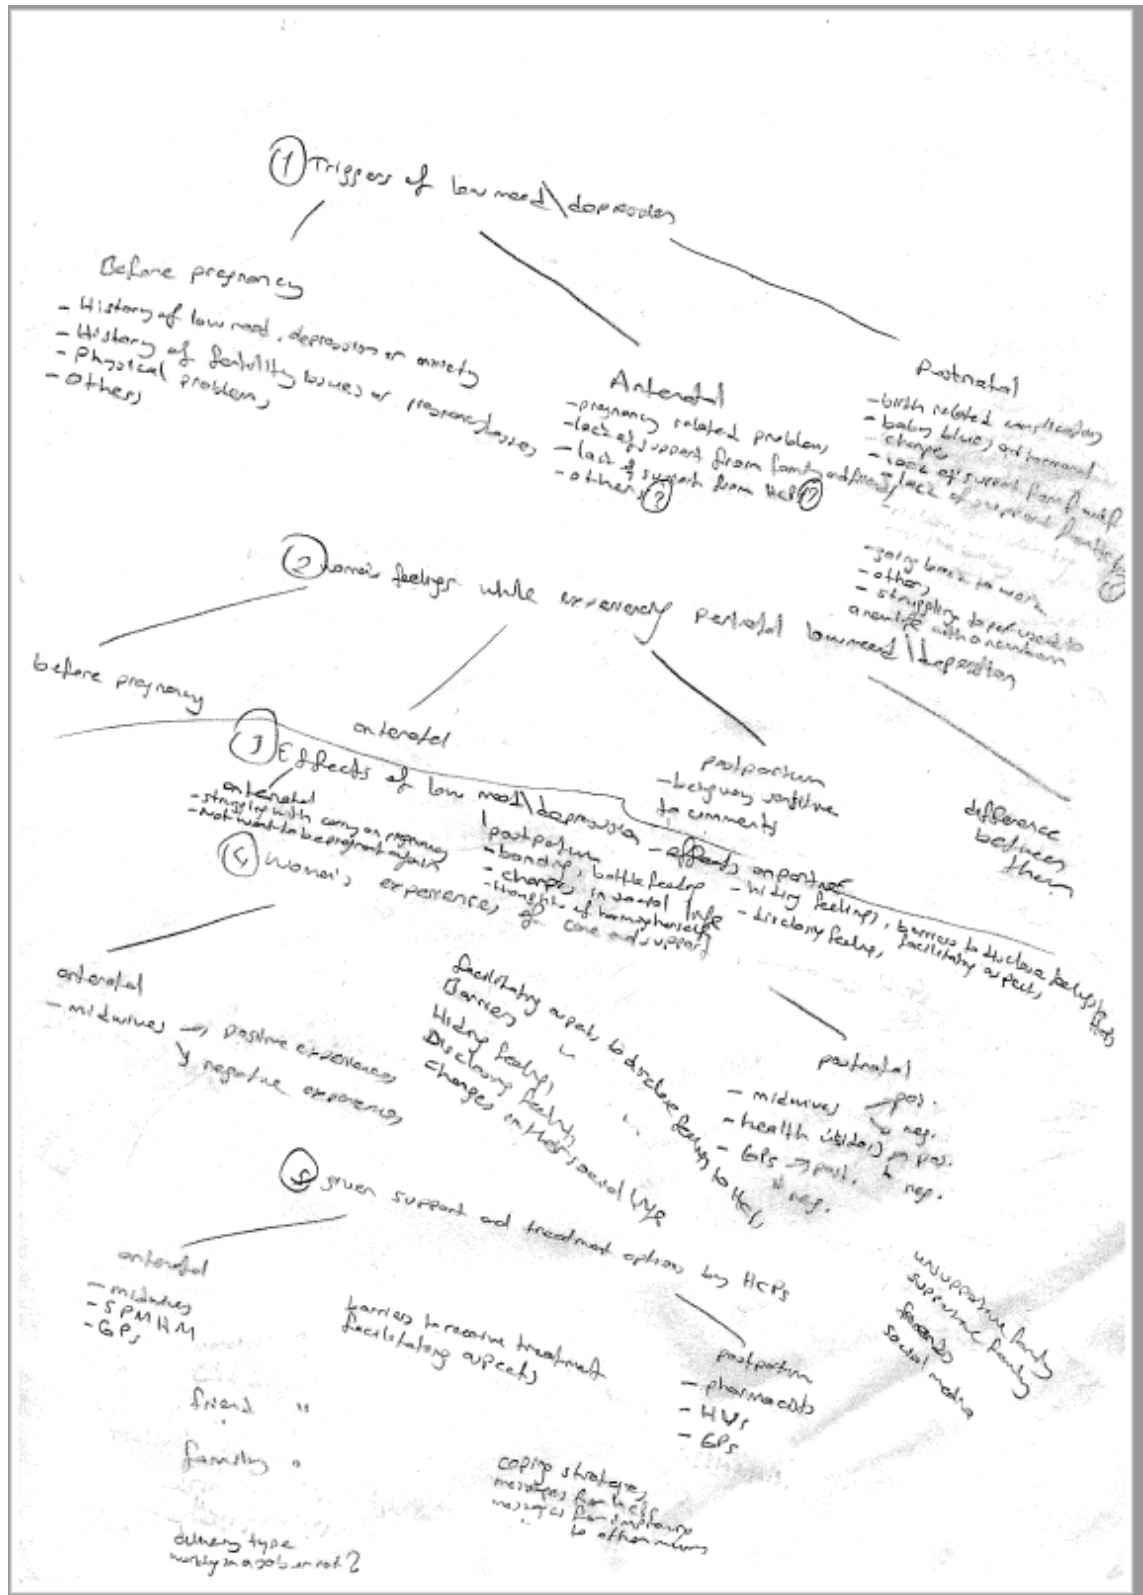 ① Triggers of low mood\depression
Before pregnancy
- History of low mood, depression or anxiety
- History of fertility issues or pregnancy losses
- Physical problems
- Others
Antenatal
- pregnancy related problems
- lack of support from family and friends
- lack of support from HCPs ?
- others ?
Postnatal
- birth related complications
- baby blues and hormonal
changes
- lack of support from f and f
- lack of support from
- going back to work
- others
- struggling to get used to
a new life with a newborn
② women's feelings while experiencing perinatal low mood\depression
before pregnancy
antenatal
postpartum
- being very sensitive
to comments
difference
between
them
③ Effects of low mood\depression - effects on partner
antenatal
- struggling with carry on pregnancy
- Not want to be pregnant again
postpartum
- bonding, bottle feeding
- changes in social life
- thoughts of
- hiding feelings, barriers to disclose feelings to
- disclosing feelings, facilitating aspects
④ Women's experiences of care and support
antenatal
- midwives → positive experiences
↘ negative experiences
facilitating aspects to disclose feelings to HCPs
Barriers "
Hiding feelings
Disclosing feelings "
changes in their social life
postnatal
- midwives → pos.
↘ neg.
- health visitors → pos.
↘ neg.
- GPs → post.
↘ neg.
⑤ given support and treatment options by HCPs
antenatal
- midwives
- SPMHM
- GPs
barriers to receive treatment
facilitating aspects
postpartum
- pharmacists
- HVs
- GPs
unsupportive family
supportive family
friends
social media
friend "
family "
coping strategies
messages for HCPs
messages from
to other mums
delivery type
working in a job or not?